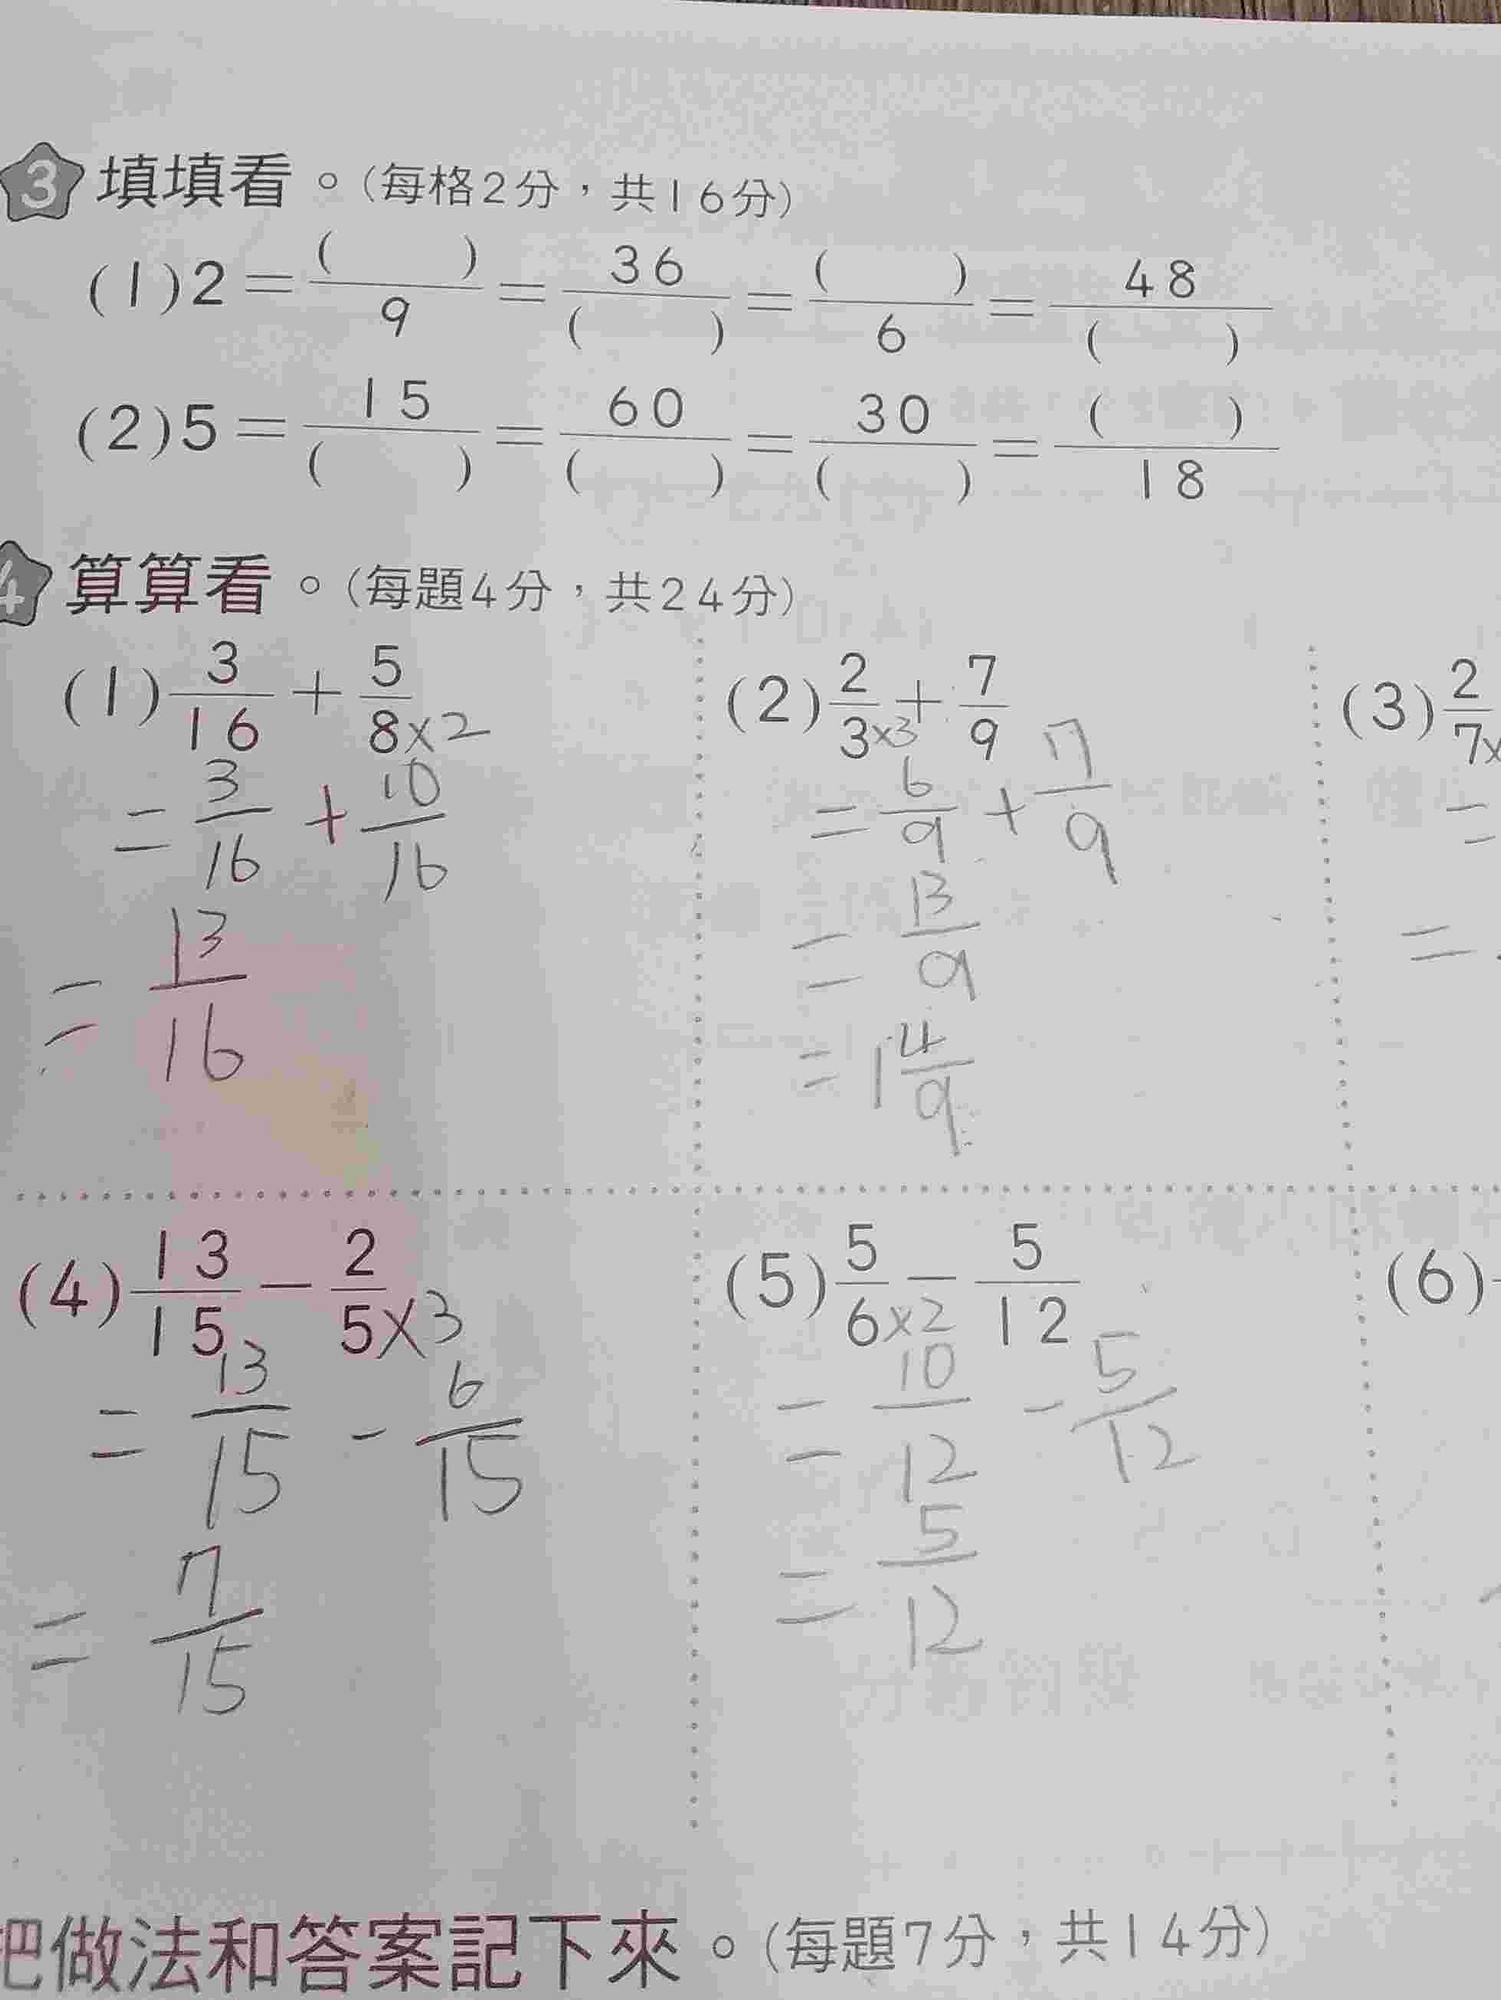 3 填填看。(每格2分，共16分)
(1) 2 = ( )/9 = 36/( ) = ( )/6 = 48/( )
(2) 5 = 15/( ) = 60/( ) = 30/( ) = ( )/18
4 算算看。(每題4分，共24分)
(1) 3/16 + 5/8×2
= 3/16 + 10/16
= 13/16
(2) 2/3×3 + 7/9
= 6/9 + 7/9
= 13/9
= 1 4/9
(3) 2/7×
=
=
(4) 13/15 - 2/5×3
= 13/15 - 6/15
= 7/15
(5) 5/6×2 - 5/12
= 10/12 - 5/12
= 5/12
(6)
把做法和答案記下來。(每題7分，共14分)